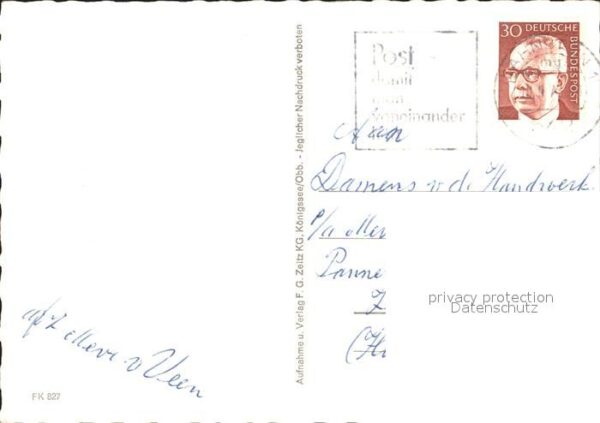 30 DEUTSCHE
BUNDESPOST
Post -
damit
man
voneinander
Aan
Damens v. d. Handwerk
p/a
Panne
Z
privacy protection
Datenschutz
v Veen
Aufnahme u. Verlag F. G. Zeitz KG. Königssee/Obb. - Jeglicher Nachdruck verboten
FK 827